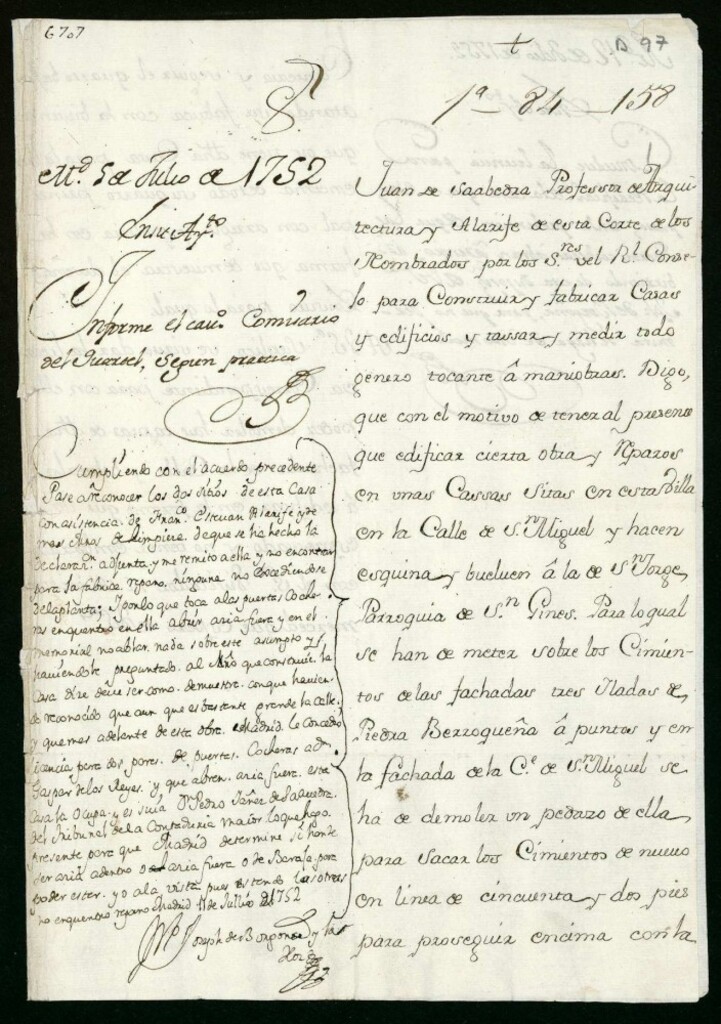 6707
D 97
1ª - 84 - 158
Md. 5 de Julio de 1752
En su Ayto.
Informe el cavo. Comisario
del Quartel, segun practica
Cumpliendo con el acuerdo precedente
Pase a Reconocer los dos sitios de esta Casa
Con asistencia de Franco. Estevan Alarife y de
mas de limpieza de que se ha hecho la
Declaran. adjunta y me remito a ella y no encontrar
para la fabrica reparo ninguno no
de la planta; y por lo que toca a las puertas Coche
ras enquentro en ella abrir acia fuera y en el
memorial no ablar nada sobre este asumpto y
haviendole preguntado al Mro que construie la
Casa dize deve ser como demuestra conque havien
do reconocido que aun que es bastente la Calle
y que mas adelante de esta obra Madrid le Concedio
licencia para dos pares de puertas Cocheras a dn.
Gaspar de los Reyes y que abren acia fuera esta
Casa la Ocupa y es suia Dn Pedro Yañez de
del Tribunal de la Contaduria maior lo que hago
presente para que Madrid determine si ponde
ser acia adentro o acia fuera o de para
poder ester y o a la vista pues estando las otras
no enquentro reparo Madrid 11 de Jullio de 1752
Joseph de Borgoña y las
Juan de Saabedra Professor de Arqui-
tectura y Alarife de esta Corte de los
Nombrados por los Sres. del Rl. Conse-
lo para Construir y fabricar Casas
y edificios y tassar y medir todo
genero tocante â maniobras. Digo,
que con el motivo de tener al presente
que edificar cierta obra y Reparos
en unas Cassas Sitas en esta Villa
en la Calle de Sn. Miguel y hacen
esquina y buelven â la de Sn. Jorge,
Parroquia de Sn. Gines. Para lo qual
se han de meter sobre los Cimien-
tos de las fachadas tres Iladas de
Piedra Berroqueña â puntas y en
la fachada de la Ce. de Sn Miguel se
ha de demoler un pedazo de ella
para Sacar los Cimientos de nuevo
en linea de cincuenta y dos pies
para proseguir encima con la